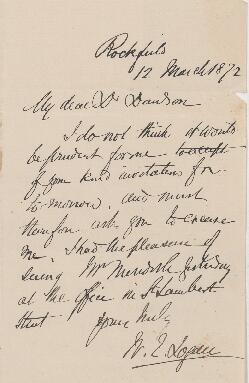 Rockfield
12 March 1872
My dear Dr Dawson
I do not think it would
be prudent for me to accept
of your kind invitation for
to-morrow, and must
therefore ask you to excuse
me. I had the pleasure of
seeing Mr yesterday
at the office in St Lambert
street
Yours truly
W. E. Logan